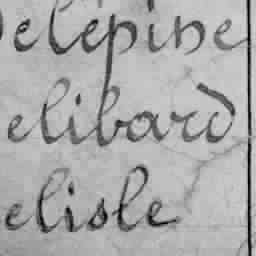 Delépine
elibard
elisle